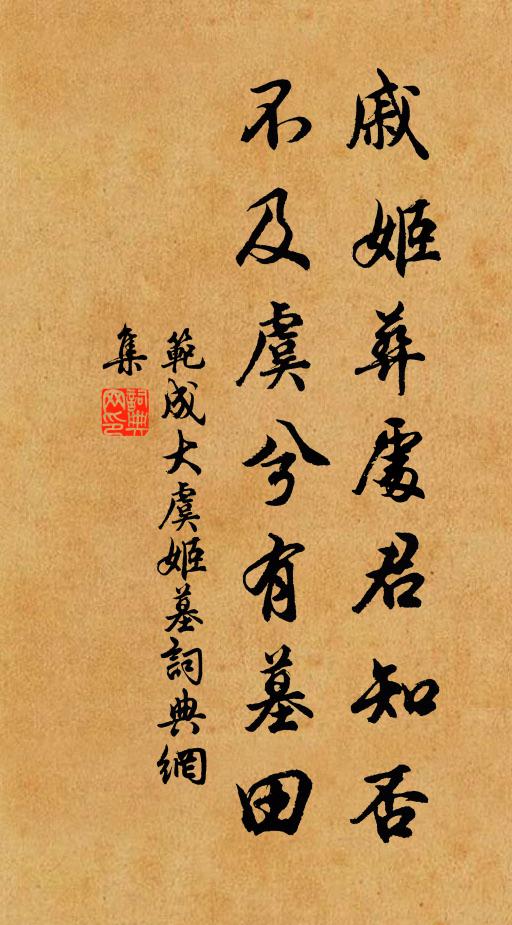 戚姬葬處君知否
不及虞兮有墓田
範成大虞姬墓詞典網
集
詞典
网印